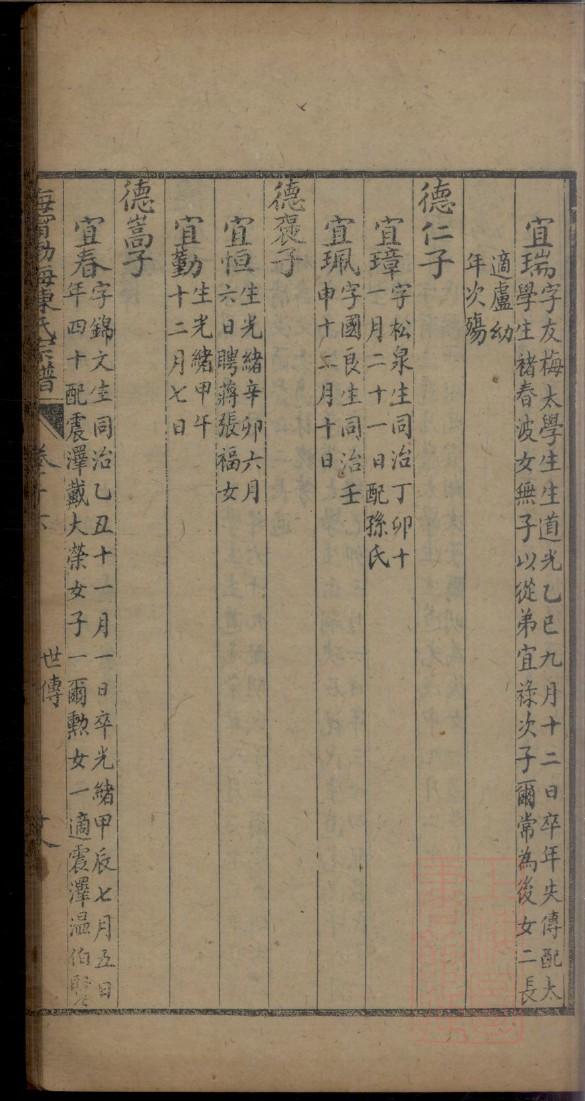 宜瑞字友梅太學生生道光乙巳九月十二日卒年失傳配太
學生褚春波女無子以從弟宜祿次子爾常為後女二長
適盧幼
年次殤
德仁子
宜璋字松泉生同治丁卯十
一月二十一日配孫氏
宜珮字國良生同治壬
申十二月十日
德褒子
宜恒生光緒辛卯六月
六日聘蔣張福女
宜勤生光緒甲午
十二月七日
德嵩子
宜春字錦文生同治乙丑十一月一日卒光緒甲辰七月五日
年四十配震澤戴大榮女子一爾勲女一適震澤温伯賢
海甯渤海陳氏宗譜
卷十六
世傳